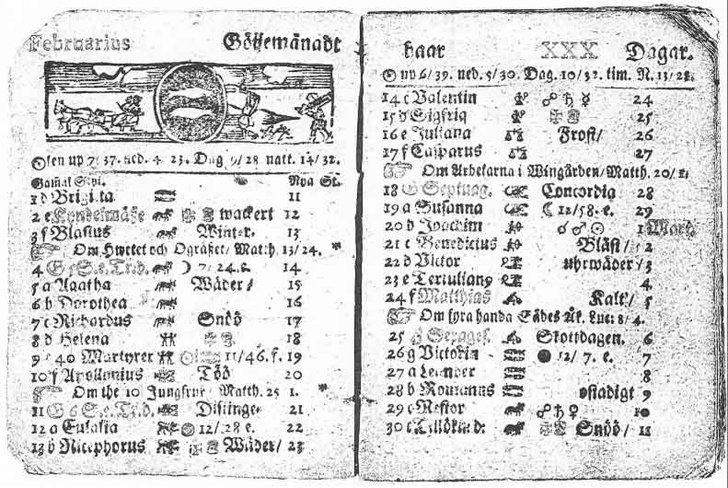 Februarius Göijemånadt
Solen up 7/37. ned. 4. 23. Dag 9/28 natt. 14/32.
Gamal Styl. Nya St.
1 d Brigitta 11
2 e Kyndelmässe wackert 12
3 f Blasius Winter. 13
Om Hwetet och Ogräset/ Matth. 13/24. *
4 G 5 S. e. Tr.d. ☽ 7/24. e. 14
5 a Agatha Wäder/ 15
6 b Dorothea 16
7 c Richardus Snöö 17
8 d Helena 18
9 e 40 Martyrer 11/46. f. 19
10 f Apollonius Töö 20
Om the 10 Jungfrur/ Matth. 25 1. *
11 G 6 S. e. Tr.d. Distinge 21
12 a Eulalia 12/28 e. 22
13 b Nicephorus Wäder/ 23
haar XXX Dagar.
☉ up 6/39. ned. 5/30. Dag. 10/32. tim. N. 13/28.
14 c Valentin ☍ ♄ ☿ 24
15 d Sigfrid 25
16 e Juliana Frost/ 26
17 f Casparus 27
Om Arbetarna i Wingården/ Matth. 20/1.
18 G Septuag. Concordia 28
19 a Susanna ☾ 12/58. e. 29
20 b Joachim ☌ ♂ ☉ 1 Mart.
21 c Benedictus Bläst/ 2
22 d Victor uhrwäder/ 3
23 e Tertuliang 4
24 f Matthias Kalt/ 5
Om fyrahanda Sädes Åk. Luc: 8/4.
25 G Sexages. Skottdagen. 6
26 g Victorin ● 12/7. e. 7
27 a Leander 8
28 b Romanus ostadigt 9
29 c Nestor ☍ ♄ ♀ 10
30 c Tillökn d: Snöö/ 11